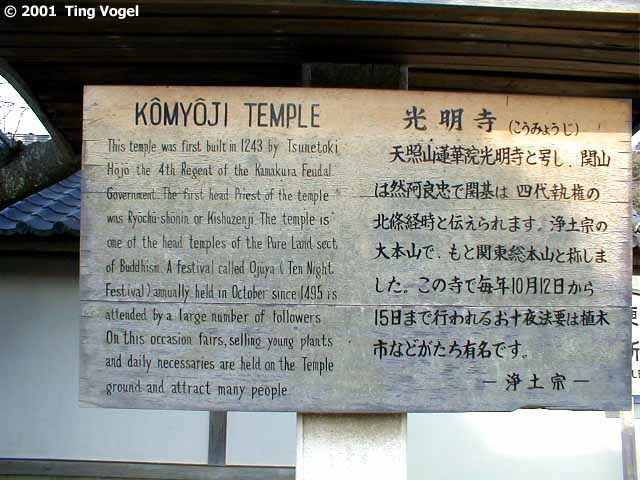 © 2001 Ting Vogel
KÔMYÔJI TEMPLE
This temple was first built in 1243 by Tsunetoki
Hōjō the 4th Regent of the Kamakura Feudal
Government. The first head Priest of the temple
was Ryōchū-shōnin or Kishuzenji. The temple is
one of the head temples of the Pure Land sect
of Buddhism. A festival called Ojūya (Ten Night
Festival) annually held in October since 1495 is
attended by a large number of followers.
On this occasion fairs, selling young plants
and daily necessaries are held on the Temple
ground and attract many people.
光明寺(こうみょうじ)
天照山蓮華院光明寺と号し、開山
は然阿良忠で開基は四代執権の
北條経時と伝えられます。浄土宗の
大本山で、もと関東総本山と称しま
した。この寺で毎年10月12日から
15日まで行われるお十夜法要は植木
市などがたち有名です。
―浄土宗―